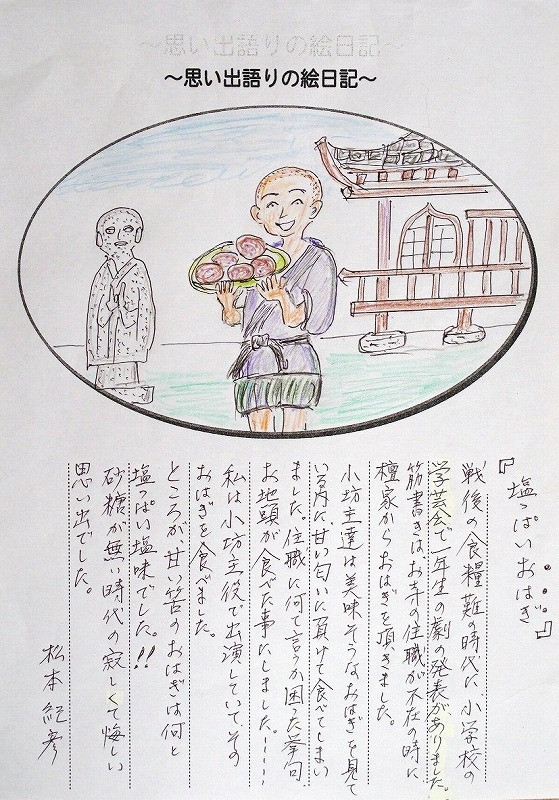 ～思い出語りの絵日記～
～思い出語りの絵日記～
『塩っぱいおはぎ・・・』
戦後の食糧難の時代に小学校の
学芸会で一年生の劇の発表がありました。
筋書きはお寺の住職が不在の時に
檀家からおはぎを頂きました。
小坊主達は美味そうなおはぎを見て
いる内に、甘い匂いに負けて食べてしまい
ました。住職に何て言うか困った挙句、
お地蔵が食べた事にしました。ーーーー
私は小坊主役で出演していて、その
おはぎを食べました。
ところが、甘い筈のおはぎは何と
塩っぱい塩味でした。!!
砂糖が無い時代の寂しくて悔しい
思い出でした。
松本紀彦